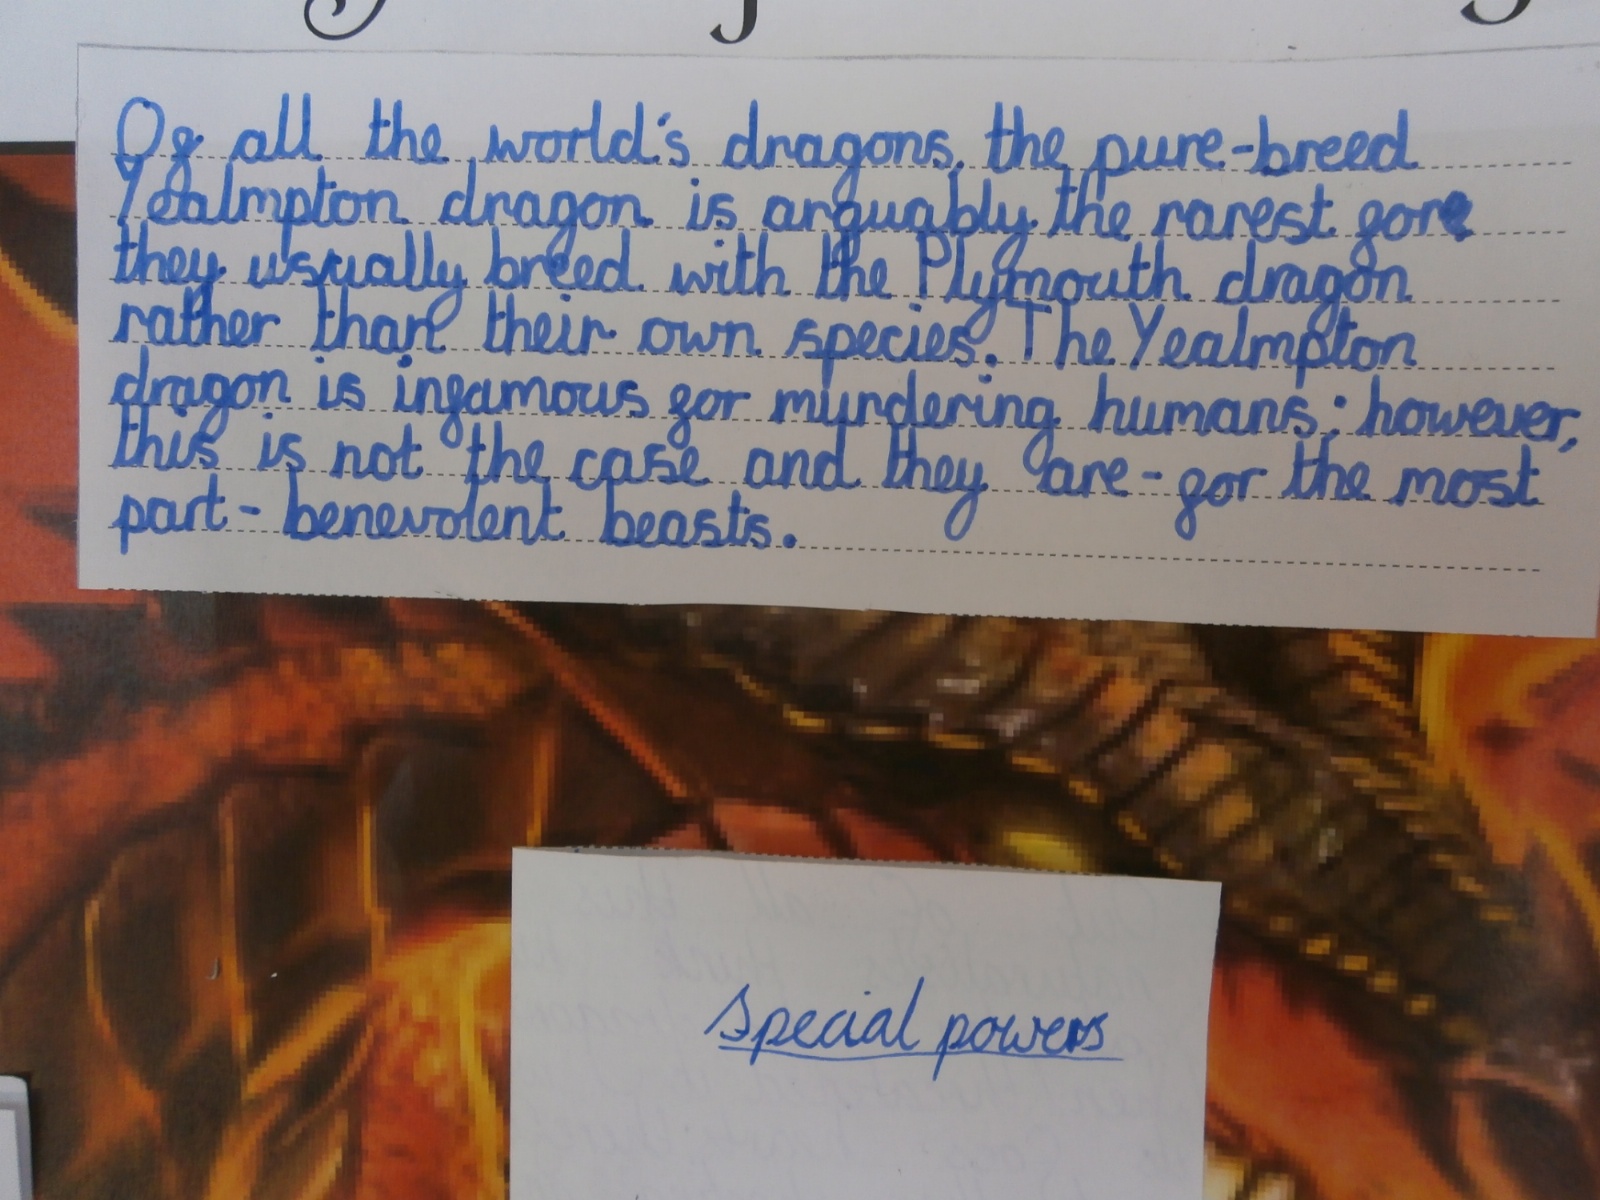 Of all the world's dragons, the pure-breed
Yealmpton dragon is arguably the rarest fore
they usually breed with the Plymouth dragon
rather than their own species. The Yealmpton
dragon is infamous for murdering humans; however,
this is not the case and they are - for the most
part - benevolent beasts.
Special powers